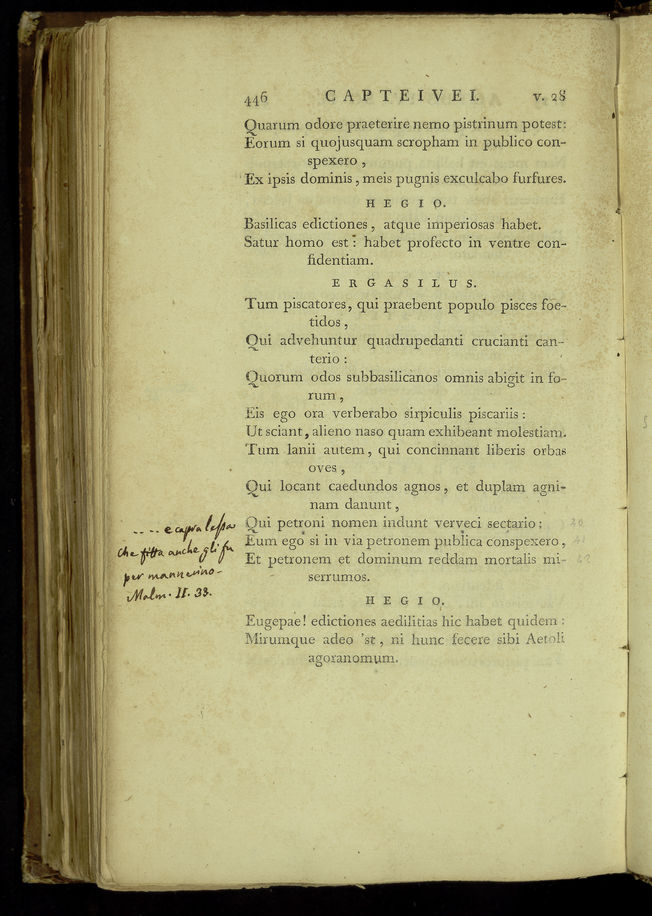 446 CAPTEIVEI. v. 28
Quarum odore praeterire nemo pistrinum potest:
Eorum si quojusquam scropham in publico con-
spexero,
Ex ipsis dominis, meis pugnis exculcabo furfures.
HEGIO.
Basilicas edictiones, atque imperiosas habet.
Satur homo est: habet profecto in ventre con-
fidentiam.
ERGASILUS.
Tum piscatores, qui praebent populo pisces foe-
tidos,
Qui advehuntur quadrupedanti crucianti can-
terio:
Quorum odos subbasilicanos omnis abigit in fo-
rum,
Eis ego ora verberabo sirpiculis piscariis:
Ut sciant, alieno naso quam exhibeant molestiam.
Tum lanii autem, qui concinnant liberis orbas
oves,
Qui locant caedundos agnos, et duplam agni-
nam danunt,
Qui petroni nomen indunt verveci sectario;
Eum ego si in via petronem publica conspexero,
Et petronem et dominum reddam mortalis mi-
serrumos.
HEGIO.
Eugepae! edictiones aedilitias hic habet quidem:
Mirumque adeo 'st, ni hunc fecere sibi Aetoli
agoranomum.
.... e capra lessa
che fitta anche gli fu
per mannerino-
Malm. II. 38.